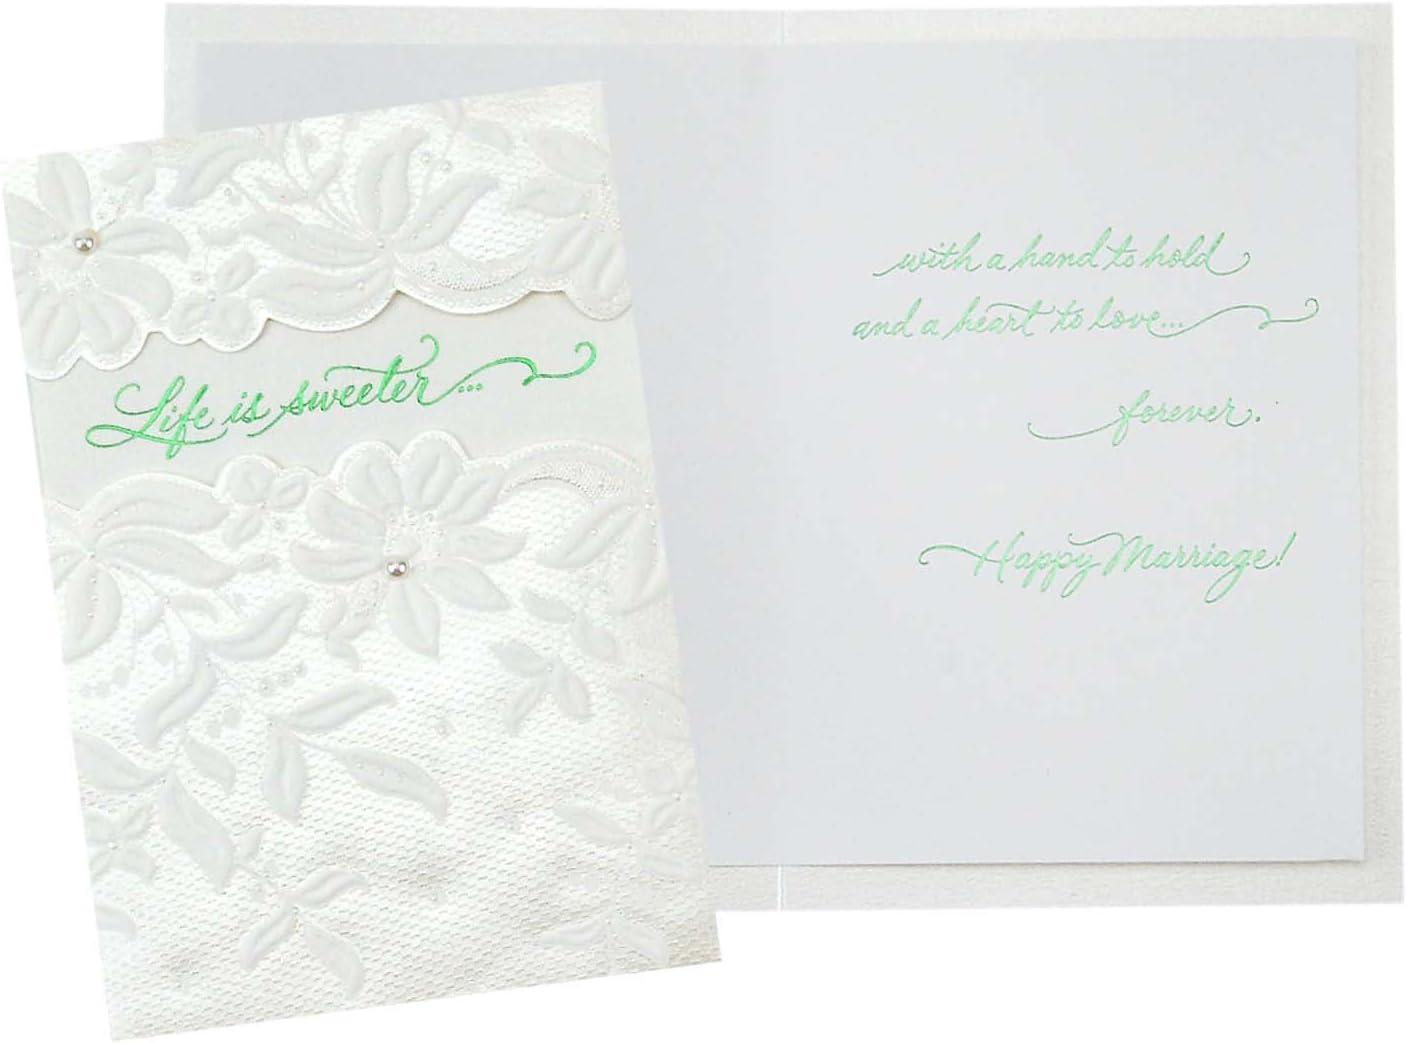 Life is sweeter...
with a hand to hold
and a heart to love...
forever.
Happy Marriage!